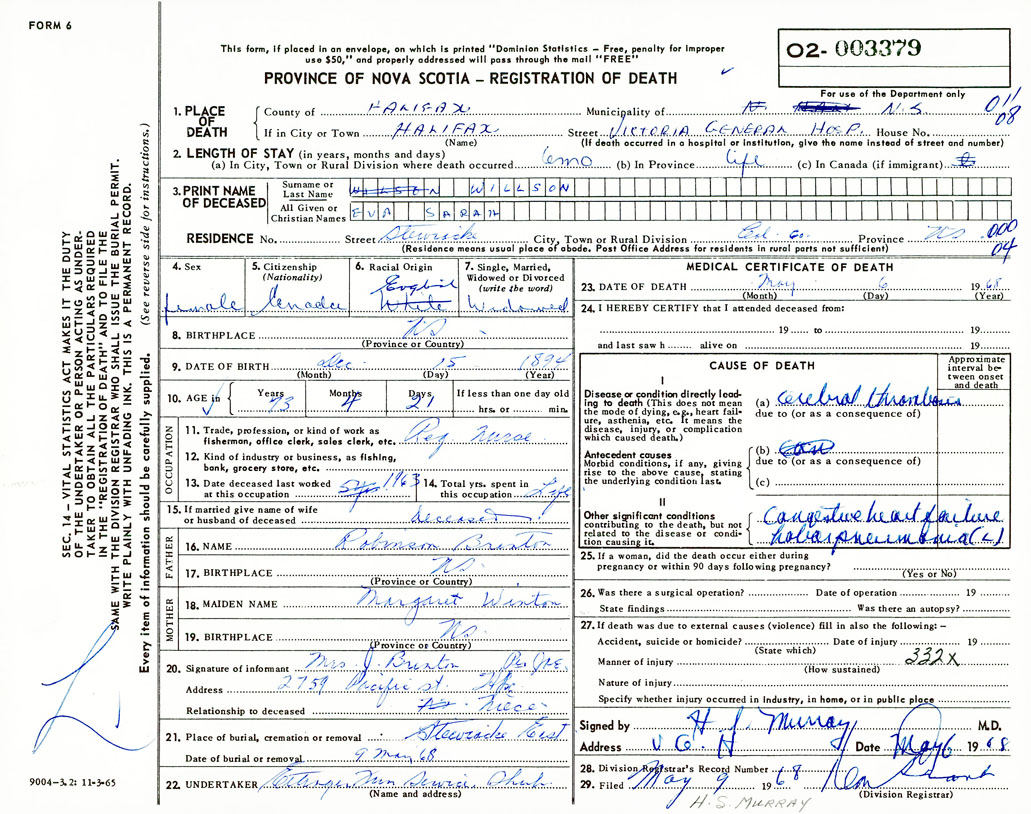 FORM 6
This form, if placed in an envelope, on which is printed "Dominion Statistics – Free, penalty for improper
use $50," and properly addressed will pass through the mail "FREE"
PROVINCE OF NOVA SCOTIA – REGISTRATION OF DEATH
O2- 003379
For use of the Department only
011
08
1. PLACE OF DEATH
County of HALIFAX Municipality of N.S.
If in City or Town HALIFAX Street VICTORIA GENERAL HOSP. House No.
(Name) (If death occurred in a hospital or institution, give the name instead of street and number)
2. LENGTH OF STAY (in years, months and days)
(a) In City, Town or Rural Division where death occurred 6mo (b) In Province Life (c) In Canada (if immigrant)
3. PRINT NAME OF DECEASED
Surname or Last Name WILLSON
All Given or Christian Names EVA SARAH
RESIDENCE No. Street Stewiacke City, Town or Rural Division Col. Co. Province NS
000
04
(Residence means usual place of abode. Post Office Address for residents in rural parts not sufficient)
4. Sex
female
5. Citizenship (Nationality)
Canada
6. Racial Origin
English
White
7. Single, Married, Widowed or Divorced (write the word)
Widowed
8. BIRTHPLACE NS
(Province or Country)
9. DATE OF BIRTH Dec 15 1894
(Month) (Day) (Year)
10. AGE in Years 73 Months 4 Days 21 If less than one day old
hrs. or min.
OCCUPATION
11. Trade, profession, or kind of work as fisherman, office clerk, sales clerk, etc. Reg Nurse
12. Kind of industry or business, as fishing, bank, grocery store, etc.
13. Date deceased last worked at this occupation 1963
14. Total yrs. spent in this occupation Life
15. If married give name of wife or husband of deceased deceased
FATHER
16. NAME Robinson Brenton
17. BIRTHPLACE NS
(Province or Country)
MOTHER
18. MAIDEN NAME Margaret Winton
19. BIRTHPLACE NS
(Province or Country)
20. Signature of informant Mrs J. Brenton
Address 2759 Pacific st. Hfx
Relationship to deceased Niece
21. Place of burial, cremation or removal Stewiacke East
Date of burial or removal 9 May 68
22. UNDERTAKER
(Name and address)
MEDICAL CERTIFICATE OF DEATH
23. DATE OF DEATH May 6 1968
(Month) (Day) (Year)
24. I HEREBY CERTIFY that I attended deceased from:
19 to 19
and last saw h alive on 19
CAUSE OF DEATH
Approximate interval between onset and death
I
Disease or condition directly leading to death (This does not mean the mode of dying, e.g., heart failure, asthenia, etc. It means the disease, injury, or complication which caused death.)
(a) cerebral thrombosis
due to (or as a consequence of)
Antecedent causes
Morbid conditions, if any, giving rise to the above cause, stating the underlying condition last.
(b)
due to (or as a consequence of)
(c)
II
Other significant conditions contributing to the death, but not related to the disease or condition causing it.
Congestive heart failure
lobar pneumonia (L)
25. If a woman, did the death occur either during pregnancy or within 90 days following pregnancy?
(Yes or No)
26. Was there a surgical operation? Date of operation 19
State findings Was there an autopsy?
27. If death was due to external causes (violence) fill in also the following:–
Accident, suicide or homicide? Date of injury 19
(State which)
Manner of injury 332X
(How sustained)
Nature of injury
Specify whether injury occurred in industry, in home, or in public place
Signed by H S. Murray M.D.
Address V G H Date May 6 1968
28. Division Registrar's Record Number
29. Filed May 9 1968
(Division Registrar)
H.S. MURRAY
SEC. 14 – VITAL STATISTICS ACT MAKES IT THE DUTY
OF THE UNDERTAKER OR PERSON ACTING AS UNDER-
TAKER TO OBTAIN ALL THE PARTICULARS REQUIRED
IN THE "REGISTRATION OF DEATH" AND TO FILE THE
SAME WITH THE DIVISION REGISTRAR WHO SHALL ISSUE THE BURIAL PERMIT.
WRITE PLAINLY WITH UNFADING INK. THIS IS A PERMANENT RECORD.
Every item of information should be carefully supplied. (See reverse side for instructions.)
9004–3.2: 11-3-65